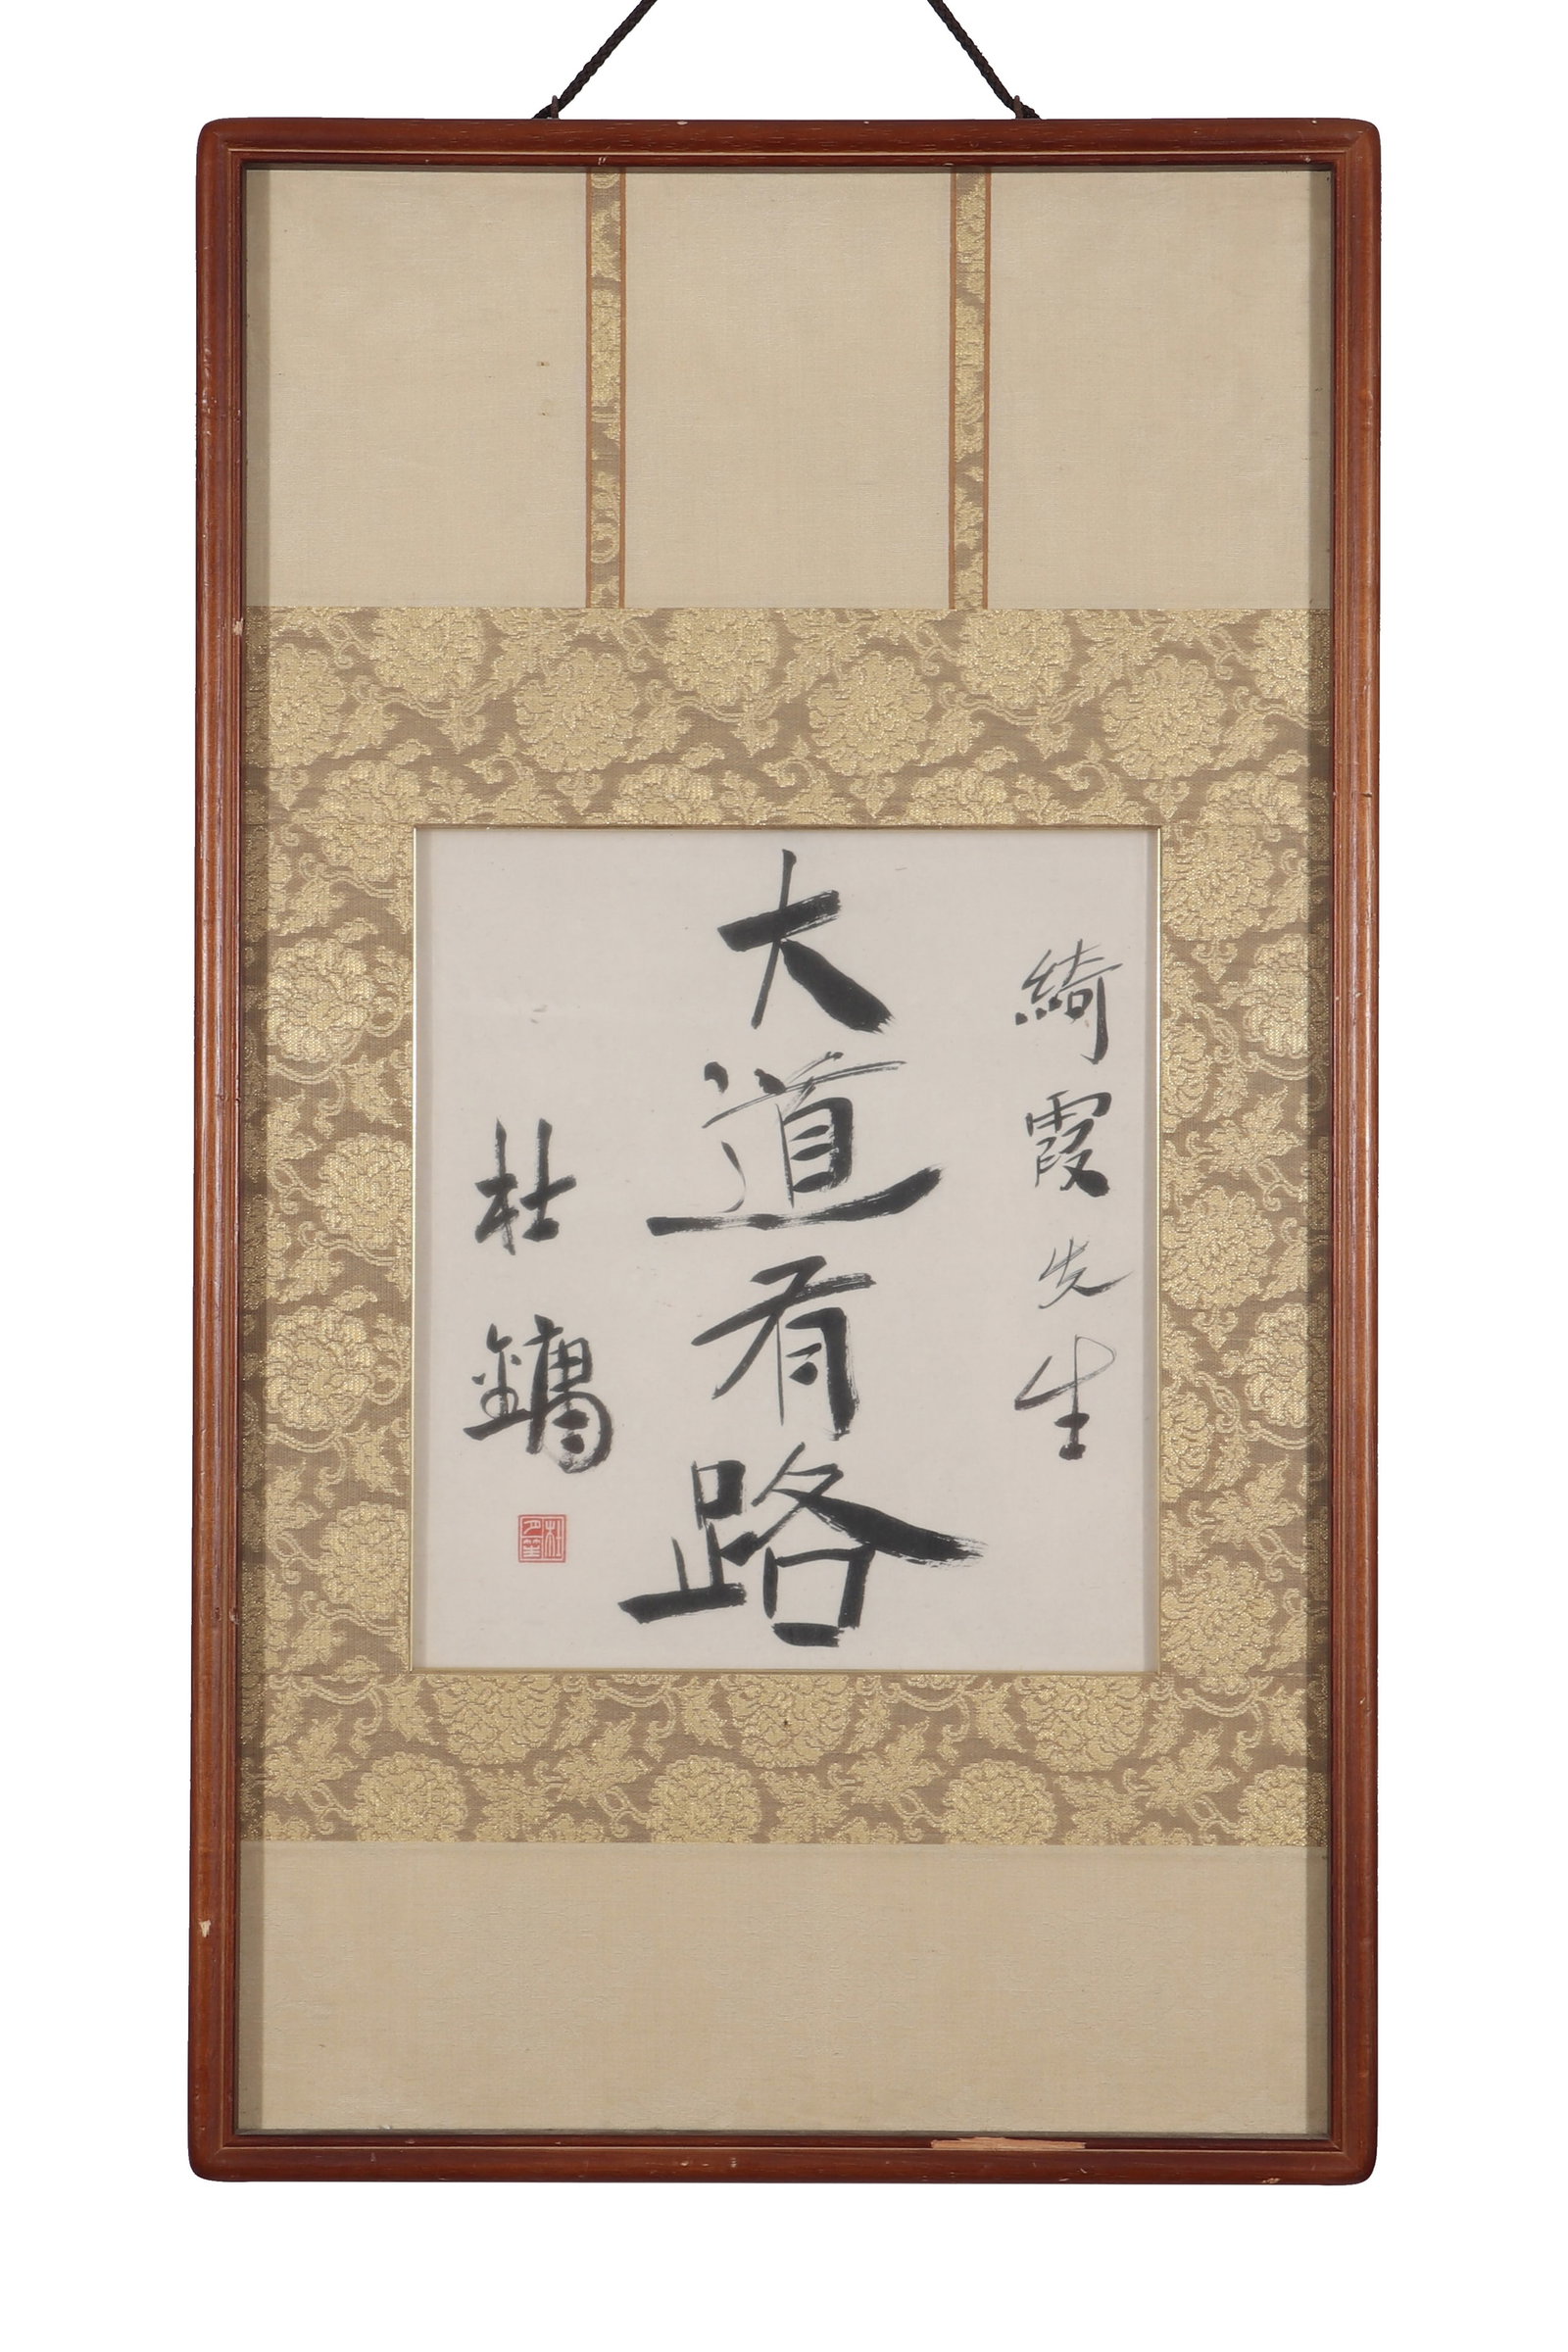 綺霞先生
大道有路
杜鏞